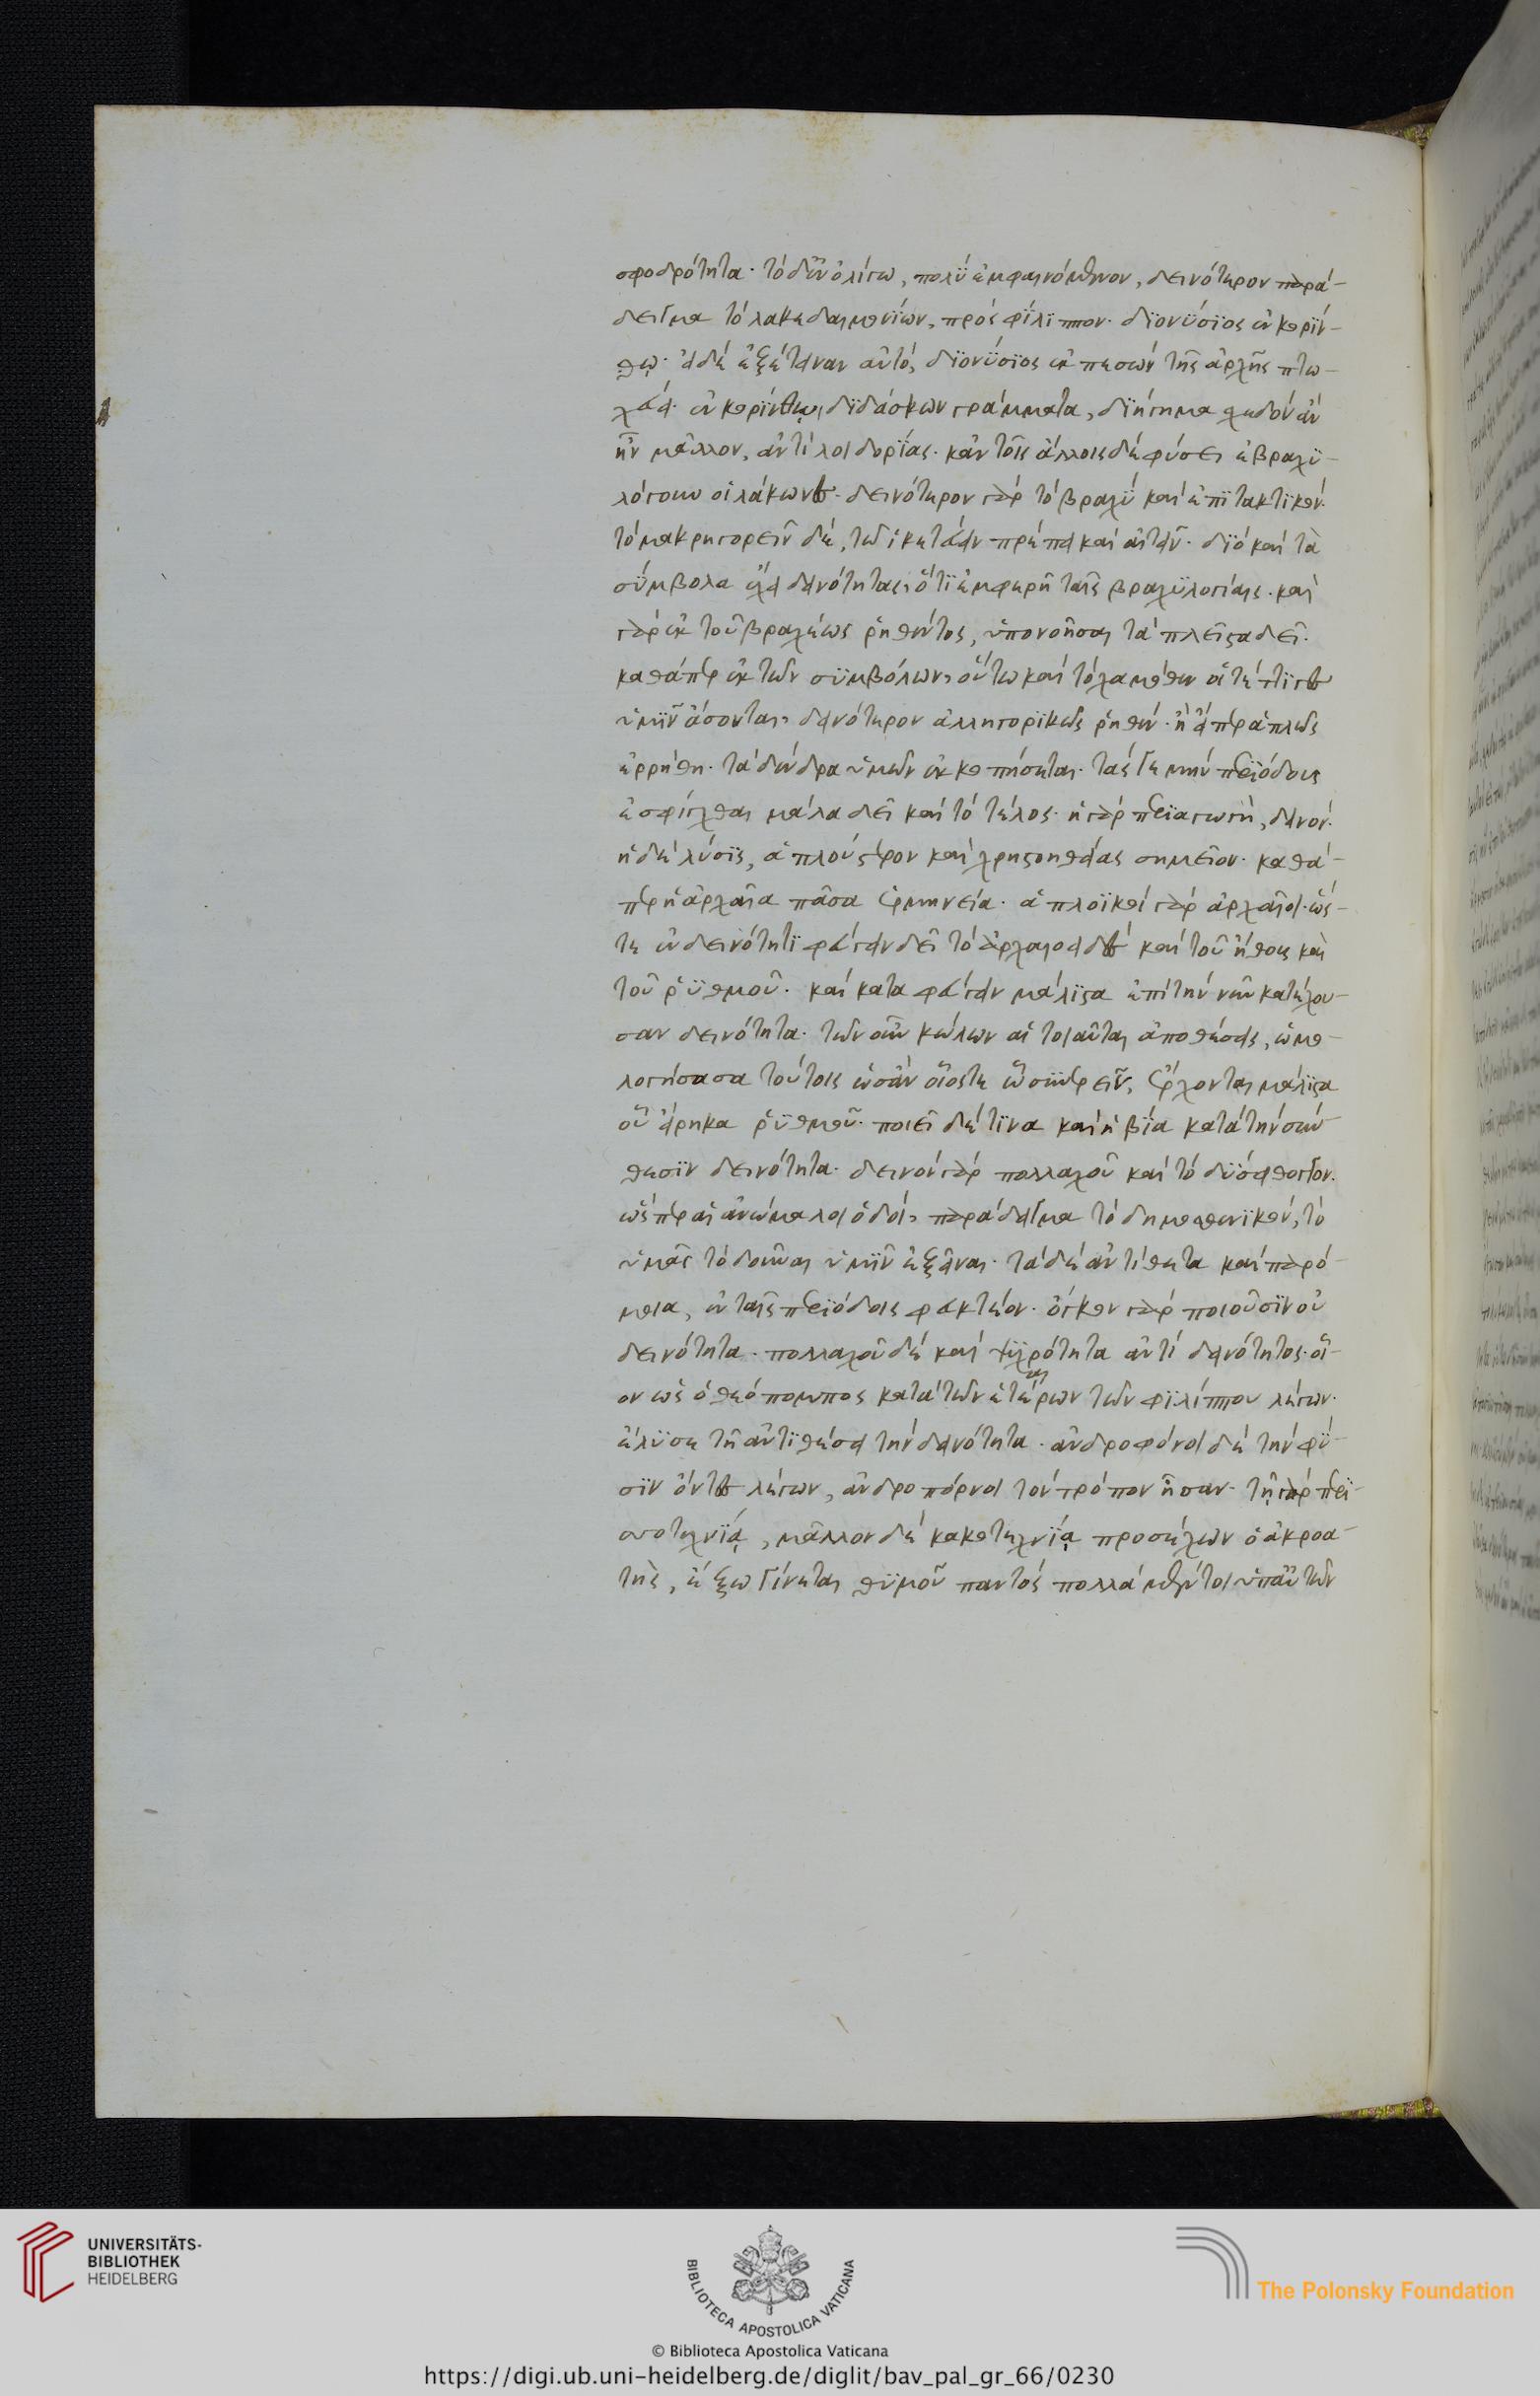 σφοδρότητα· τὸ δ' ἐν ὀλίγω, πολὺ ἐμφαινόμενον, δεινότερον παρά-
δειγμα τὸ λακεδαιμονίων, πρὸς φίλιππον· διονύσιος ἐν κορίν-
θῳ· εἰ δὲ ἐξέτειναν αὐτό, διονύσιος ἐκπεσὼν τῆς ἀρχῆς πτω-
χεύει ἐν κορίνθῳ, διδάσκων γράμματα, διήγημα σχεδὸν ἂν
ἦν μᾶλλον, ἀντὶ λοιδορίας· κἀν τοῖς ἄλλοις δὲ φύσει ἐβραχυ-
λόγουν οἱ λάκωνες· δεινότερον γὰρ τὸ βραχὺ καὶ ἐπιτακτικόν·
τὸ μακρηγορεῖν δέ, τῶ ἱκετεύειν πρέπει καὶ αἰτεῖν· διὸ καὶ τὰ
σύμβολα ἔχει δεινότητας, ὅτι ἐμφερῆ ταῖς βραχυλογίαις· καὶ
γὰρ ἐκ τοῦ βραχέως ῥηθέντος, ὑπονοῆσαι τὰ πλεῖστα δεῖ·
καθάπερ ἐκ τῶν συμβόλων, οὕτω καὶ τὸ χαμόθεν οἱ τέττιγες
ὑμῖν ἄσονται, δεινότερον ἀλληγορικῶς ῥηθέν· ἢ εἴπερ ἁπλῶς
ἐρρήθη· τὰ δένδρα ὑμῶν ἐκκοπήσεται· τάς γε μὴν περιόδους
ἐσφίγχθαι μάλα δεῖ κατὰ τὸ τέλος· ἡ γὰρ περιαγωγή, δεινόν·
ἡ δὲ λύσις, ἁπλούστερον καὶ χρηστοηθείας σημεῖον· καθά-
περ ἡ ἀρχαῖα πᾶσα ἑρμηνεία· ἁπλοϊκοὶ γὰρ ἀρχαῖοι· ὥς-
τε ἐν δεινότητι φεύγειν δεῖ τὸ ἀρχαιοειδὲς καὶ τοῦ ἤθους καὶ
τοῦ ῥυθμοῦ· καὶ καταφεύγειν μάλιστα ἐπὶ τὴν νῦν κατέχου-
σαν δεινότητα· τῶν οὖν κώλων αἱ τοιαῦται ἀποθέσεις, ὡμο-
λόγησα τούτοις ὡς ἂν οἷός τε ὦ συνερεῖν, ἔρχονται μάλιστα
οὗ εἴρηκα ῥυθμοῦ· ποιεῖ δέ τινα καὶ ἡ βία κατὰ τὴν σύν
θεσιν δεινότητα· δεινὸν γὰρ πολλαχοῦ καὶ τὸ δύσφθογγον·
ὥσπερ αἱ ἀνώμαλοι ὁδοί, παράδειγμα τὸ δημοσθενικόν, τὸ
ὑμᾶς τὸ δοῦναι ὑμῖν ἐξεῖναι· τὰ δὲ ἀντίθετα καὶ παρό-
μοια, ἐν ταῖς περιόδοις φευκτέον· ὄγκον γὰρ ποιοῦσιν οὐ
δεινότητα· πολλαχοῦ δὲ καὶ ψυχρότητα ἀντὶ δεινότητος· οἷ-
ον ὡς ὁ θεόπομπος κατὰ τῶν ἑταίρων τῶν φιλίππου λέγων·
ἔλυσε τῆ ἀντιθέσει τὴν δεινότητα· ἀνδροφόνοι δὲ τὴν φύ-
σιν ὄντες λέγων, ἀνδροπόρνοι τὸν τρόπον ἦσαν· τῇ γὰρ περι-
σσοτεχνίᾳ, μᾶλλον δὲ κακοτεχνίᾳ προσέχων ὁ ἀκροα-
τής, ἔξω γίνεται θυμοῦ παντός· πολλὰ μέντοι ὑπ' αὐτῶν
UNIVERSITÄTS-
BIBLIOTHEK
HEIDELBERG
BIBLIOTECA APOSTOLICA VATICANA
The Polonsky Foundation
© Biblioteca Apostolica Vaticana
https://digi.ub.uni-heidelberg.de/diglit/bav_pal_gr_66/0230